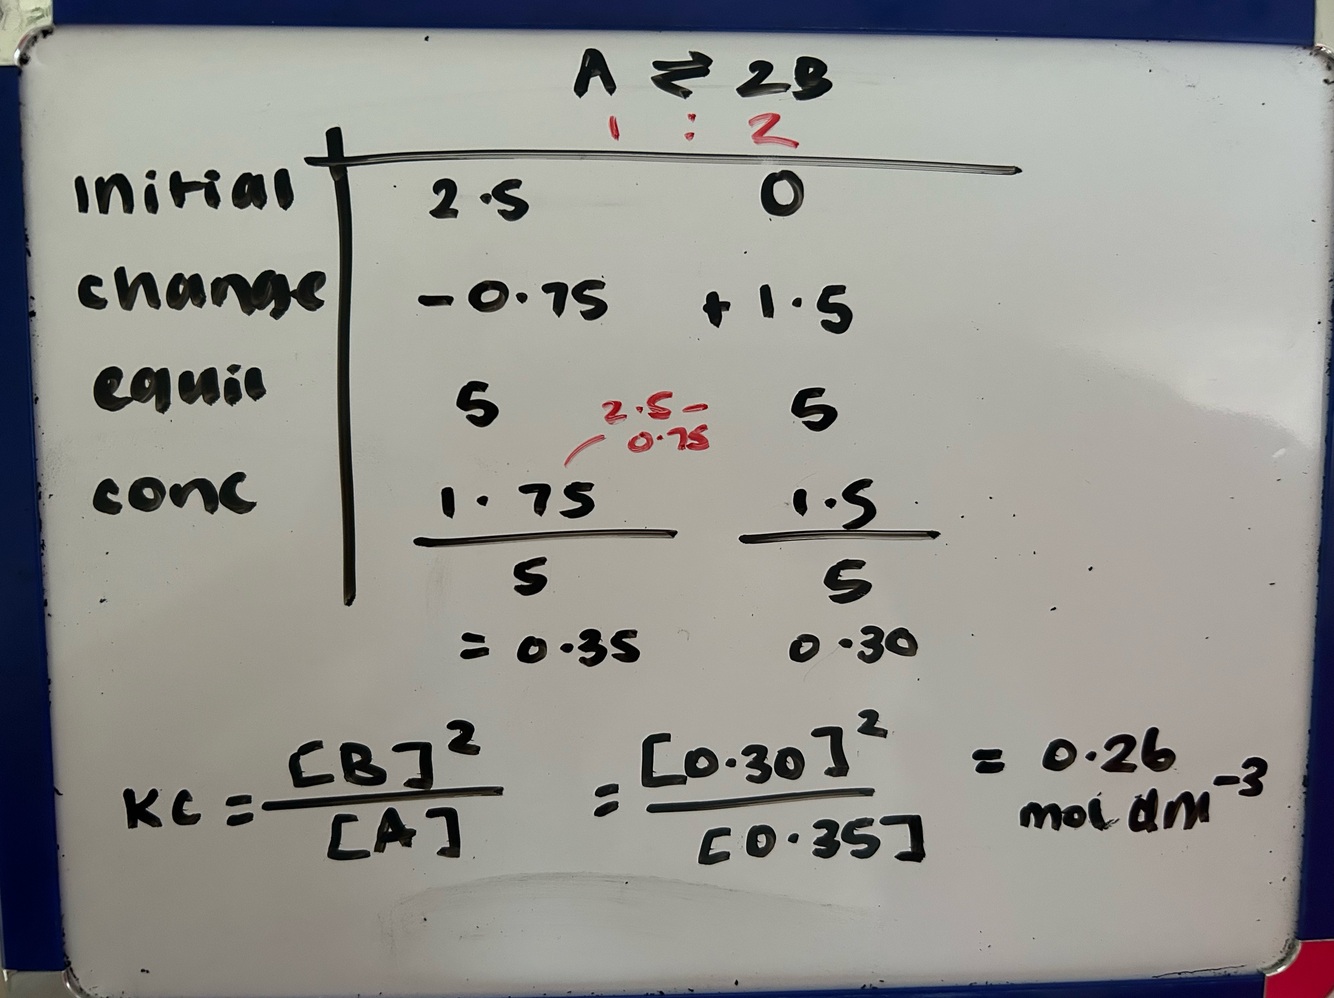 A ⇌ 2B
1 : 2
initial 2.5 0
change -0.75 +1.5
equil 5 5
2.5-
0.75
conc 1.75 1.5
5 5
= 0.35 0.30
KC = [B]² / [A] = [0.30]² / [0.35] = 0.26
mol dm⁻³